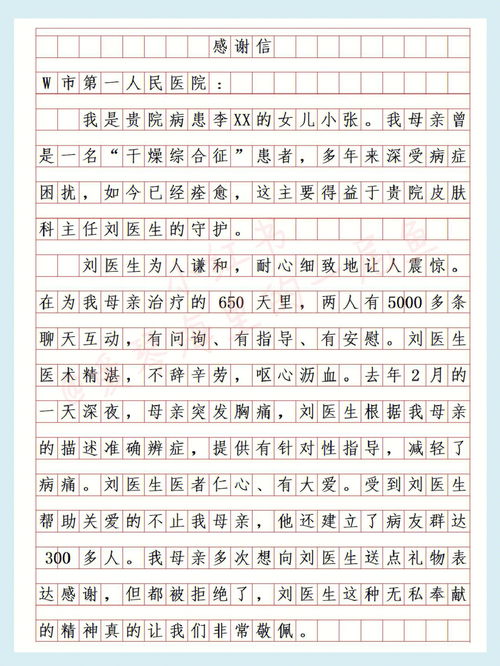 感谢信
W市第一人民医院：
我是贵院病患李XX的女儿小张。我母亲曾
是一名“干燥综合征”患者，多年来深受病症
困扰，如今已经痊愈，这主要得益于贵院皮肤
科主任刘医生的守护。
刘医生为人谦和，耐心细致地让人震惊。
在为我母亲治疗的 650 天里，两人有5000多条
聊天互动，有问询、有指导、有安慰。刘医生
医术精湛，不辞辛劳，呕心沥血。去年2月的
一天深夜，母亲突发胸痛，刘医生根据我母亲
的描述准确辨症，提供有针对性指导，减轻了
病痛。刘医生医者仁心、有大爱。受到刘医生
帮助关爱的不止我母亲，他还建立了病友群达
300 多人。我母亲多次想向刘医生送点礼物表
达感谢，但都被拒绝了，刘医生这种无私奉献
的精神真的让我们非常敬佩。